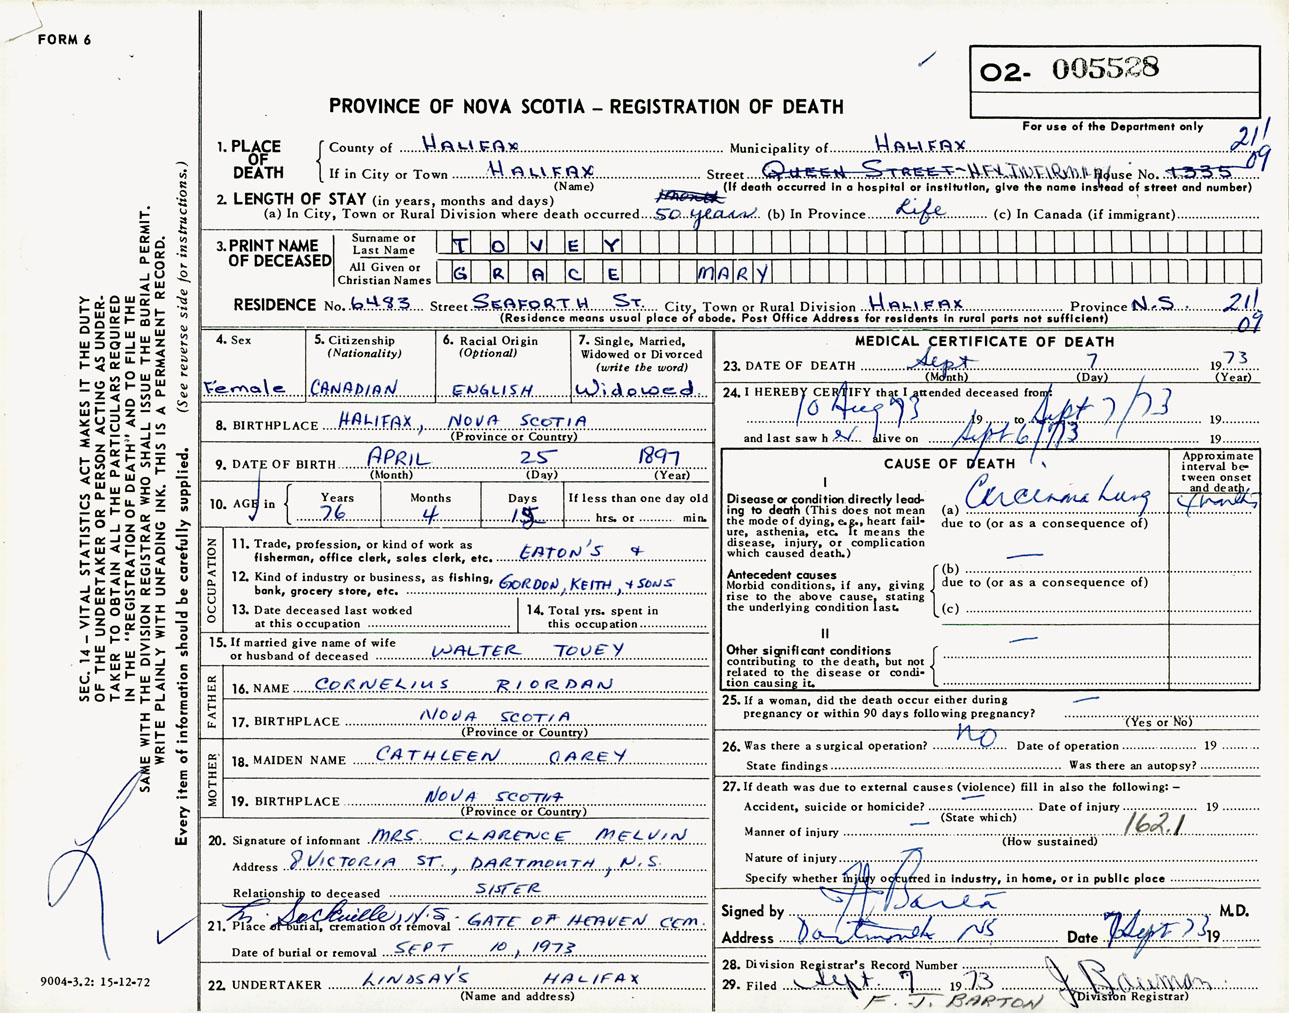 FORM 6
02- 005528
PROVINCE OF NOVA SCOTIA – REGISTRATION OF DEATH
For use of the Department only
1. PLACE OF DEATH
County of HALIFAX Municipality of HALIFAX 211
09
If in City or Town HALIFAX Street QUEEN STREET - HFX INFIRMARY House No. 1335
(Name) (If death occurred in a hospital or institution, give the name instead of street and number)
2. LENGTH OF STAY (in years, months and days)
(a) In City, Town or Rural Division where death occurred 50 years (b) In Province Life (c) In Canada (if immigrant)
3. PRINT NAME OF DECEASED
Surname or Last Name TOVEY
All Given or Christian Names GRACE MARY
RESIDENCE No. 6483 Street SEAFORTH ST. City, Town or Rural Division HALIFAX Province N.S. 211
09
(Residence means usual place of abode. Post Office Address for residents in rural parts not sufficient)
4. Sex
Female
5. Citizenship
(Nationality)
CANADIAN
6. Racial Origin
(Optional)
ENGLISH
7. Single, Married,
Widowed or Divorced
(write the word)
Widowed
8. BIRTHPLACE HALIFAX, NOVA SCOTIA
(Province or Country)
9. DATE OF BIRTH APRIL 25 1897
(Month) (Day) (Year)
10. AGE in
Years Months Days If less than one day old
76 4 hrs. or min.
OCCUPATION
11. Trade, profession, or kind of work as
fisherman, office clerk, sales clerk, etc. EATON'S +
12. Kind of industry or business, as fishing,
bank, grocery store, etc. GORDON, KEITH, + SONS
13. Date deceased last worked
at this occupation
14. Total yrs. spent in
this occupation
15. If married give name of wife
or husband of deceased WALTER TOVEY
FATHER
16. NAME CORNELIUS RIORDAN
17. BIRTHPLACE NOVA SCOTIA
(Province or Country)
MOTHER
18. MAIDEN NAME CATHLEEN CAREY
19. BIRTHPLACE NOVA SCOTIA
(Province or Country)
20. Signature of informant MRS. CLARENCE MELVIN
Address 8 VICTORIA ST., DARTMOUTH, N.S.
Relationship to deceased SISTER
Sackville, N.S.
21. Place of burial, cremation or removal GATE OF HEAVEN CEM.
Date of burial or removal SEPT 10, 1973
22. UNDERTAKER LINDSAY'S HALIFAX
(Name and address)
MEDICAL CERTIFICATE OF DEATH
23. DATE OF DEATH Sept 7 1973
(Month) (Day) (Year)
24. I HEREBY CERTIFY that I attended deceased from:
10 Aug 73 19 to Sept 7/73 19
and last saw her alive on Sept 6/73 19
CAUSE OF DEATH
Approximate
interval be-
tween onset
and death
I
Disease or condition directly lead-
ing to death (This does not mean
the mode of dying, e.g., heart fail-
ure, asthenia, etc. It means the
disease, injury, or complication
which caused death.)
(a) Carcinoma Lung 4 months
due to (or as a consequence of)
Antecedent causes
Morbid conditions, if any, giving
rise to the above cause, stating
the underlying condition last.
(b)
due to (or as a consequence of)
(c)
II
Other significant conditions
contributing to the death, but not
related to the disease or condi-
tion causing it.
25. If a woman, did the death occur either during
pregnancy or within 90 days following pregnancy?
(Yes or No)
26. Was there a surgical operation? no Date of operation 19
State findings Was there an autopsy?
27. If death was due to external causes (violence) fill in also the following: –
Accident, suicide or homicide? Date of injury 19
(State which)
Manner of injury 162.1
(How sustained)
Nature of injury
Specify whether injury occurred in industry, in home, or in public place
Signed by M.D.
Address Dartmouth NS Date 7 Sept 73 19
28. Division Registrar's Record Number
29. Filed Sept. 7 1973
(Division Registrar)
F. J. BARTON
SEC. 14 – VITAL STATISTICS ACT MAKES IT THE DUTY
OF THE UNDERTAKER OR PERSON ACTING AS UNDER-
TAKER TO OBTAIN ALL THE PARTICULARS REQUIRED
IN THE "REGISTRATION OF DEATH" AND TO FILE THE
SAME WITH THE DIVISION REGISTRAR WHO SHALL ISSUE THE BURIAL PERMIT.
WRITE PLAINLY WITH UNFADING INK. THIS IS A PERMANENT RECORD.
Every item of information should be carefully supplied. (See reverse side for instructions.)
9004-3.2: 15-12-72